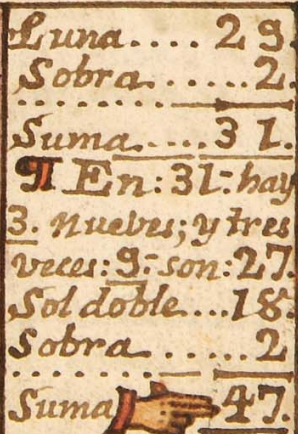 Luna.... 29.
Sobra...... 2.
Suma..... 31.
¶ En: 31: hay
3. nueves; y tres
veces: 9: son: 27.
Sol doble... 18.
Sobra...... 2
Suma 47.